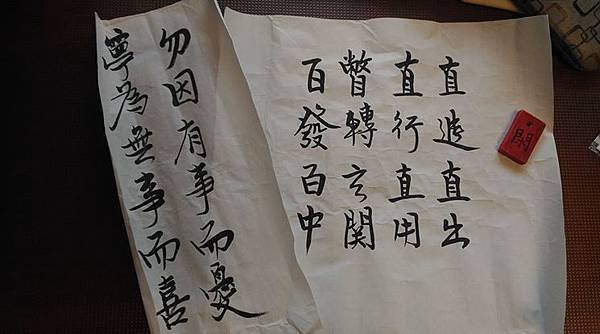 直造直出
直行直用
瞥轉玄關
百發百中
勿因有事而憂
寧為無事而喜